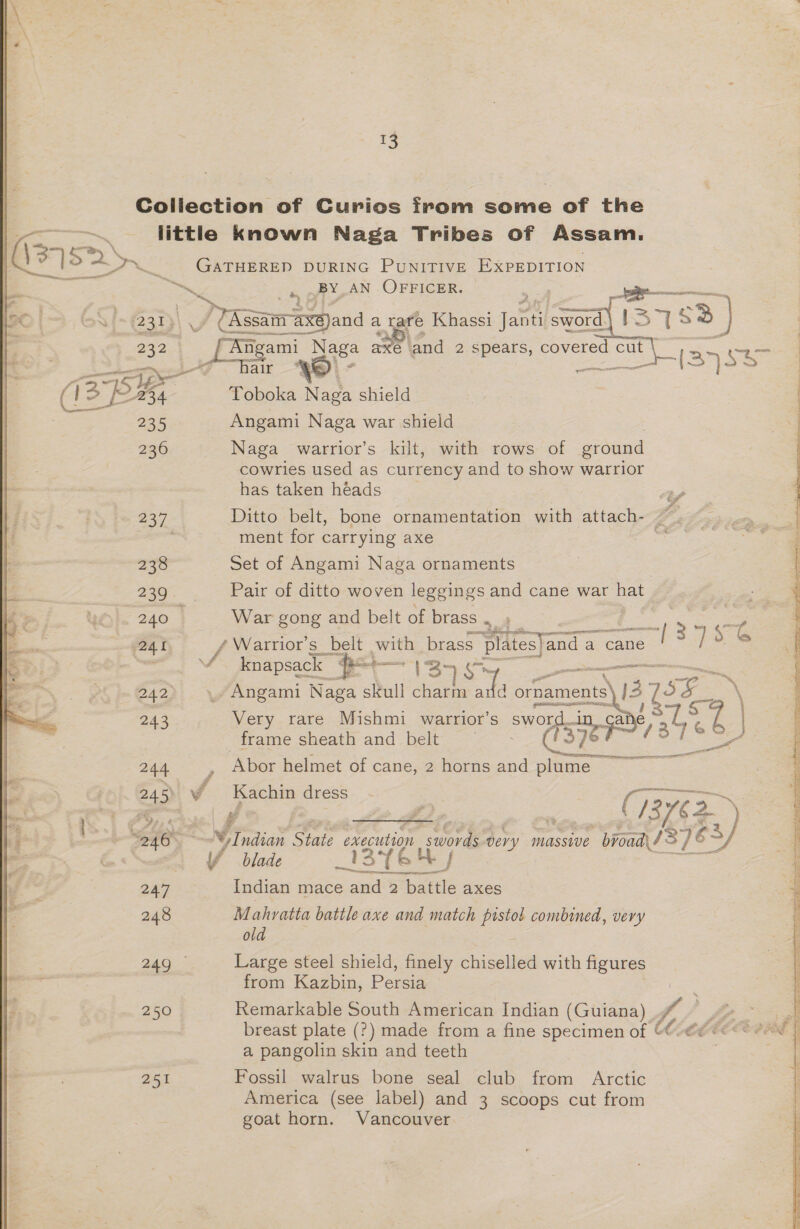 13
Collection of Curios from some of the
little known Naga Tribes of Assam.
(13752)
GATHERED DURING PUNITIVE EXPEDITION
BY AN OFFICER.
231 Assam axe and a rare Khassi Janti sword 13753
232 Angami Naga axe and 2 spears, covered cut
hair 13755
234 Toboka Naga shield
235 Angami Naga war shield
236 Naga warrior's kilt, with rows of ground
cowries used as currency and to show warrior
has taken heads
237 Ditto belt, bone ornamentation with attach-
ment for carrying axe
238 Set of Angami Naga ornaments
239 Pair of ditto woven leggings and cane war hat
240 War gong and belt of brass
241 Warrior's belt with brass plates and a cane 13756
knapsack 1375
242 Angami Naga skull charm and ornaments 13758
243 Very rare Mishmi warrior's sword in cane 13759
frame sheath and belt
244 Abor helmet of cane, 2 horns and plume
245 Kachin dress
13762
246 Indian State execution swords very massive broad 13763
blade 13764
247 Indian mace and 2 battle axes
248 Mahratta battle axe and match pistol combined, very
old
249 Large steel shield, finely chiselled with figures
from Kazbin, Persia
250 Remarkable South American Indian (Guiana)
breast plate (?) made from a fine specimen of
a pangolin skin and teeth
251 Fossil walrus bone seal club from Arctic
America (see label) and 3 scoops cut from
goat horn. Vancouver